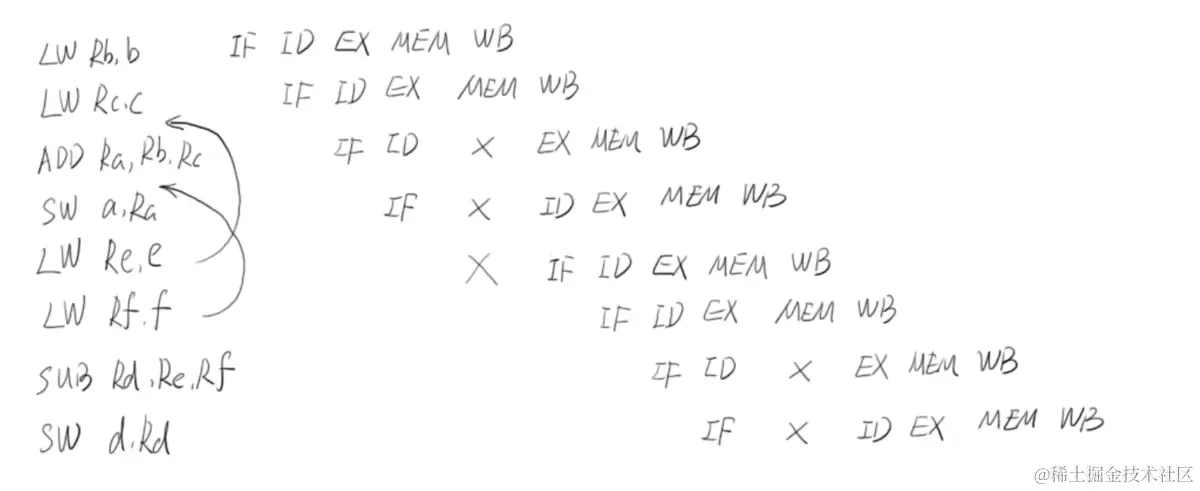 LW Rb,b IF ID EX MEM WB
LW Rc.c IF ID EX MEM WB
ADD Ra,Rb.Rc IF ID X EX MEM WB
SW a.Ra IF X ID EX MEM WB
LW Re,e X IF ID EX MEM WB
LW Rf.f IF ID EX MEM WB
SUB Rd.Re,Rf IF ID X EX MEM WB
SW d.Rd IF X ID EX MEM WB
@稀土掘金技术社区